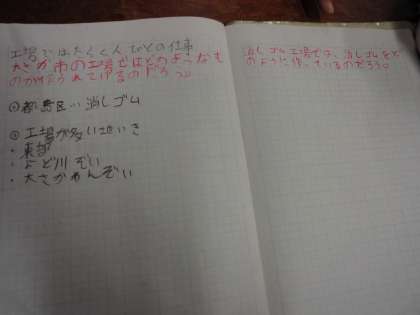 工場ではたらく人びとの仕事
大さか市の工場ではどのようなも
のが作られているのだろう。
都島区い消しゴム
工場が多い地いき
・東部
・よど川ぞい
・大さかわんぞい
消しゴム工場では、消しゴムをど
のように作っているのだろう。